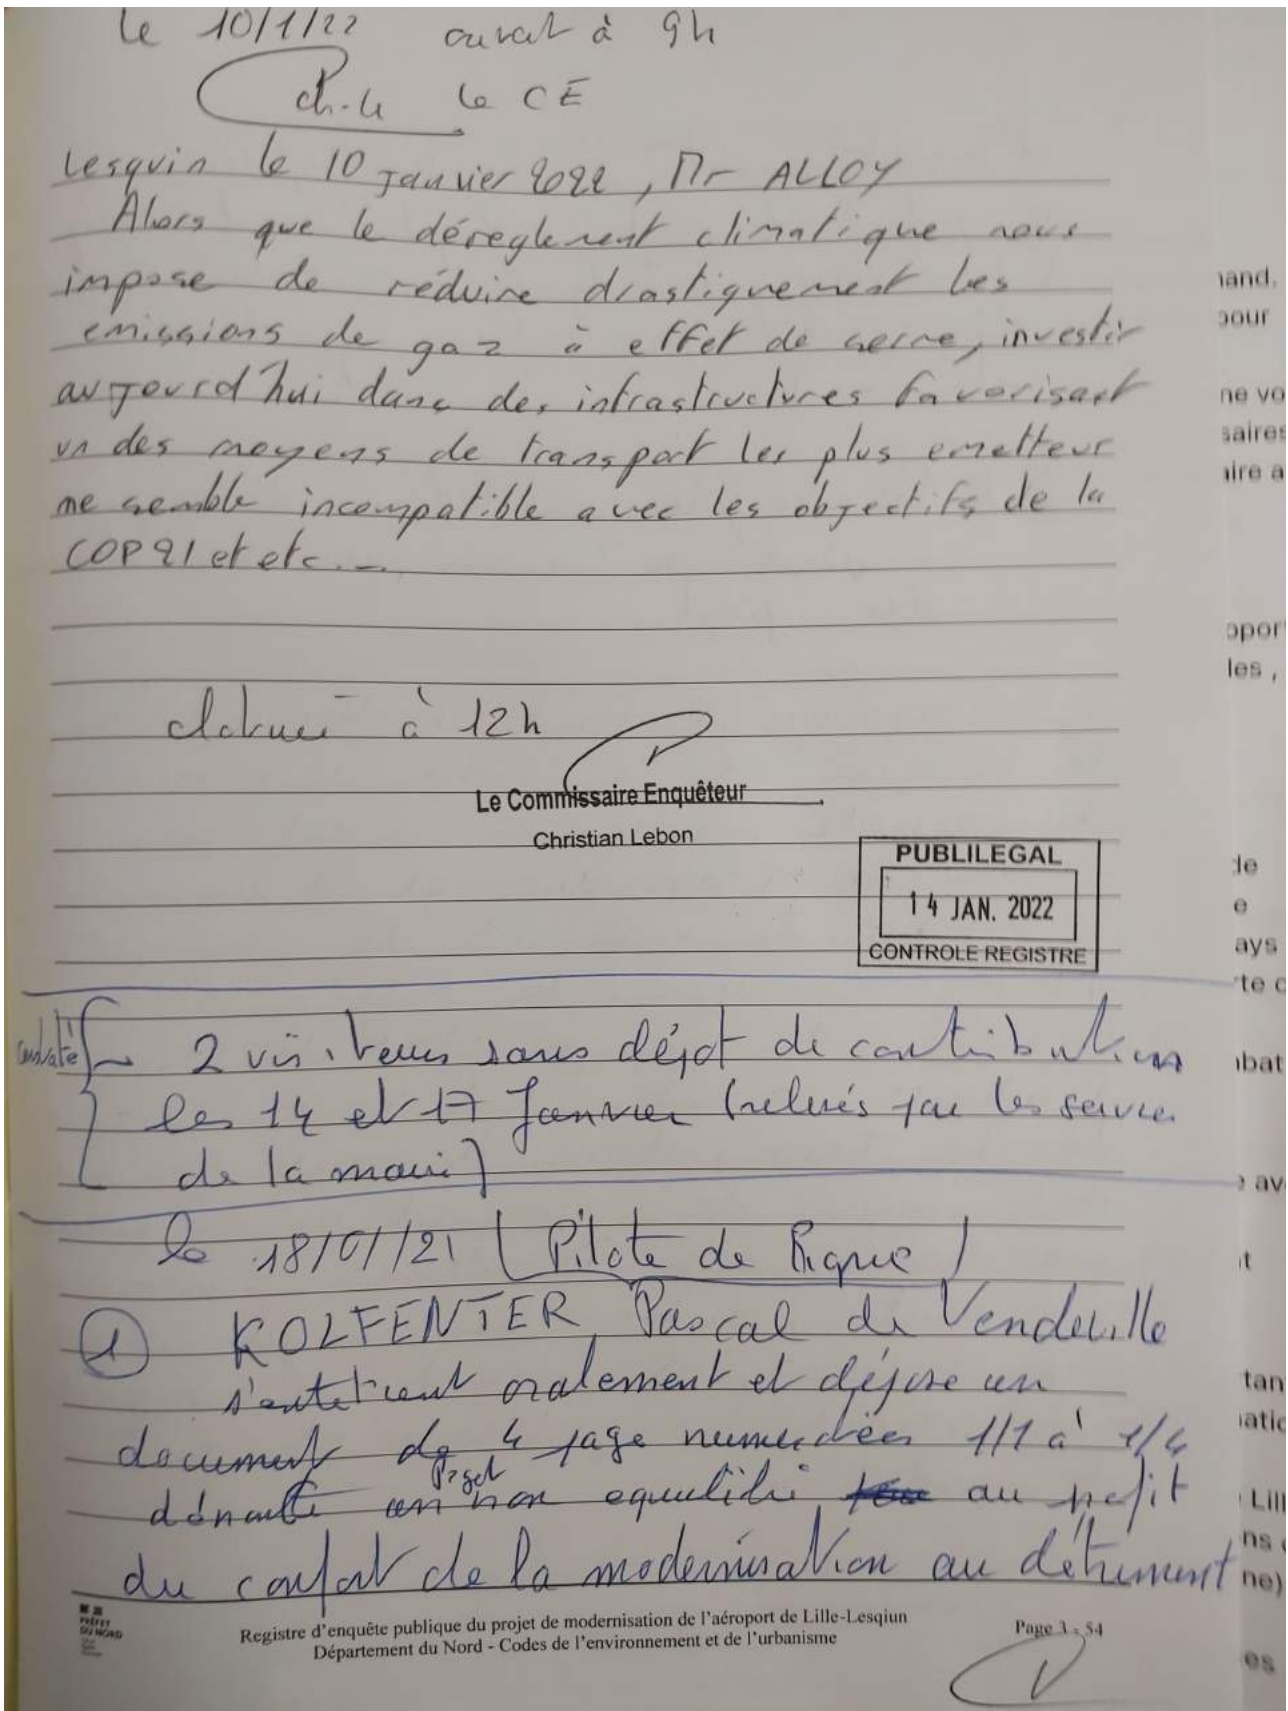 le 10/1/22 ouvert à 9h
le CE
Lesquin le 10 Janvier 2022, Mr ALLOY
Alors que le déreglement climatique nous
impose de réduire drastiquement les
emissions de gaz à effet de serre, investir
aujourd'hui dans des infrastructures favorisant
un des moyens de transport les plus emetteur
me semble incompatible avec les objectifs de la
COP21 et etc...
cloturé à 12h
Le Commissaire Enquêteur
Christian Lebon
PUBLILEGAL
14 JAN. 2022
CONTROLE REGISTRE
2 visiteurs sans dépôt de contribution
les 14 et 17 Janvier (relevés par les services
de la mairie)
le 18/01/21 (Pilote de ligne)
1 KOLFENTER Pascal de Vendeville
s'entretient oralement et dépose un
document de 4 page numérotées 1/1 à 1/4
dénonce un projet non equilibré au profit
du confort de la modernisation au détriment
PRÉFET
DU NORD
Registre d'enquête publique du projet de modernisation de l'aéroport de Lille-Lesqiun
Département du Nord - Codes de l'environnement et de l'urbanisme
Page 3 - 54